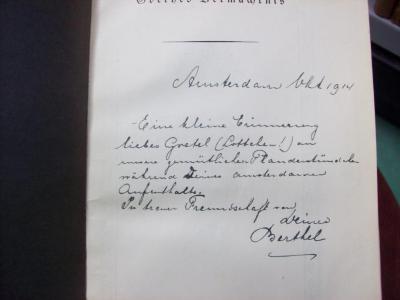 Goethes Vermächtnis
Amsterdam Okt 1914
Eine kleine Erinnerung
liebes Gretel (Lottchen!) an
unsere gemütlichen Plauderstündchen
während Deines amsterdamer
Aufenthaltes
In treuer Freundschaft von
Deiner
Berthel